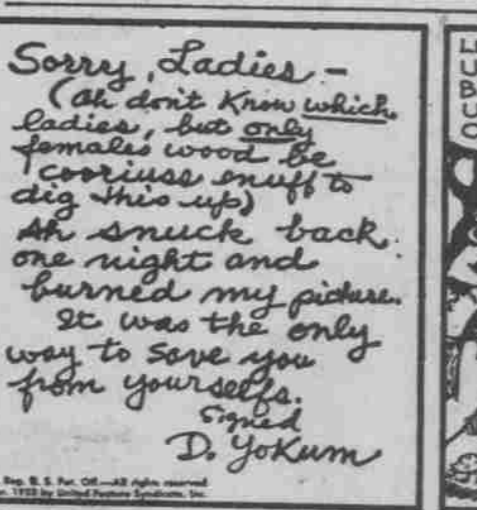 Sorry, Ladies -
(Ah don't know which
ladies, but only
females wood be
cooriuss enuff to
dig this up)
Ah snuck back
one night and
burned my picture.
It was the only
way to save you
from yourselfs.
Signed
D. Yokum
Reg. U. S. Pat. Off.—All rights reserved
by United Feature Syndicate, Inc.
L
U
B
U